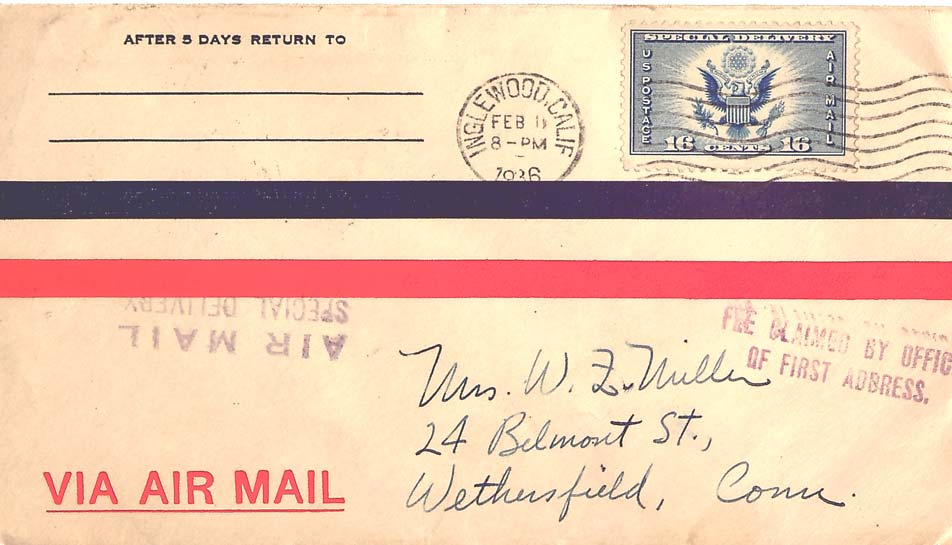 AFTER 5 DAYS RETURN TO
INGLEWOOD, CALIF
FEB 11
8-PM
1936
SPECIAL DELIVERY
U S POSTAGE
AIR MAIL
16 CENTS 16
SPECIAL DELIVERY
AIR MAIL
FEE CLAIMED BY OFFIC
OF FIRST ADDRESS.
Mrs. W. Z. Miller
24 Belmont St.,
Wethersfield, Conn.
VIA AIR MAIL